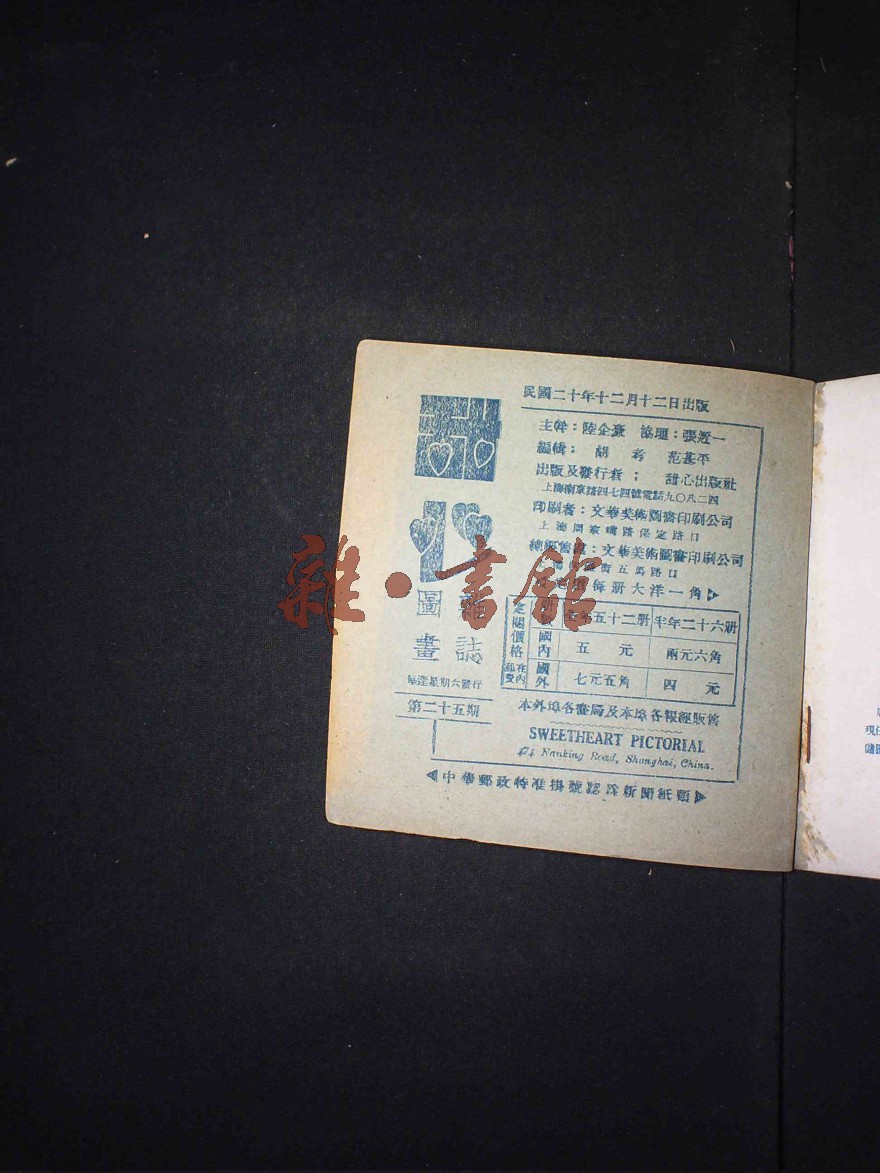 民國二十年十二月十二日出版
主幹：陸企 協理：張近一
編輯：胡考 范甚平
出版及發行者；甜心出版社
上海南京路四七四號電話九〇八二四
印刷者：文華美術圖書印刷公司
上海周家嘴路保定路口
總經售處：文華美術圖書印刷公司
五馬路口
每册大洋一角
定閱價格
全年五十二册 半年二十六册
國內 五元 兩元六角
國外 七元五角 四元
郵費在內
本外埠各書局及本埠各報經販售
SWEETHEART PICTORIAL
474 Nanking Road, Shanghai, China.
中華郵政特准掛號認爲新聞紙類
甜心
圖
畫誌
每逢星期六發行
第二十五期
雜·書館
現任